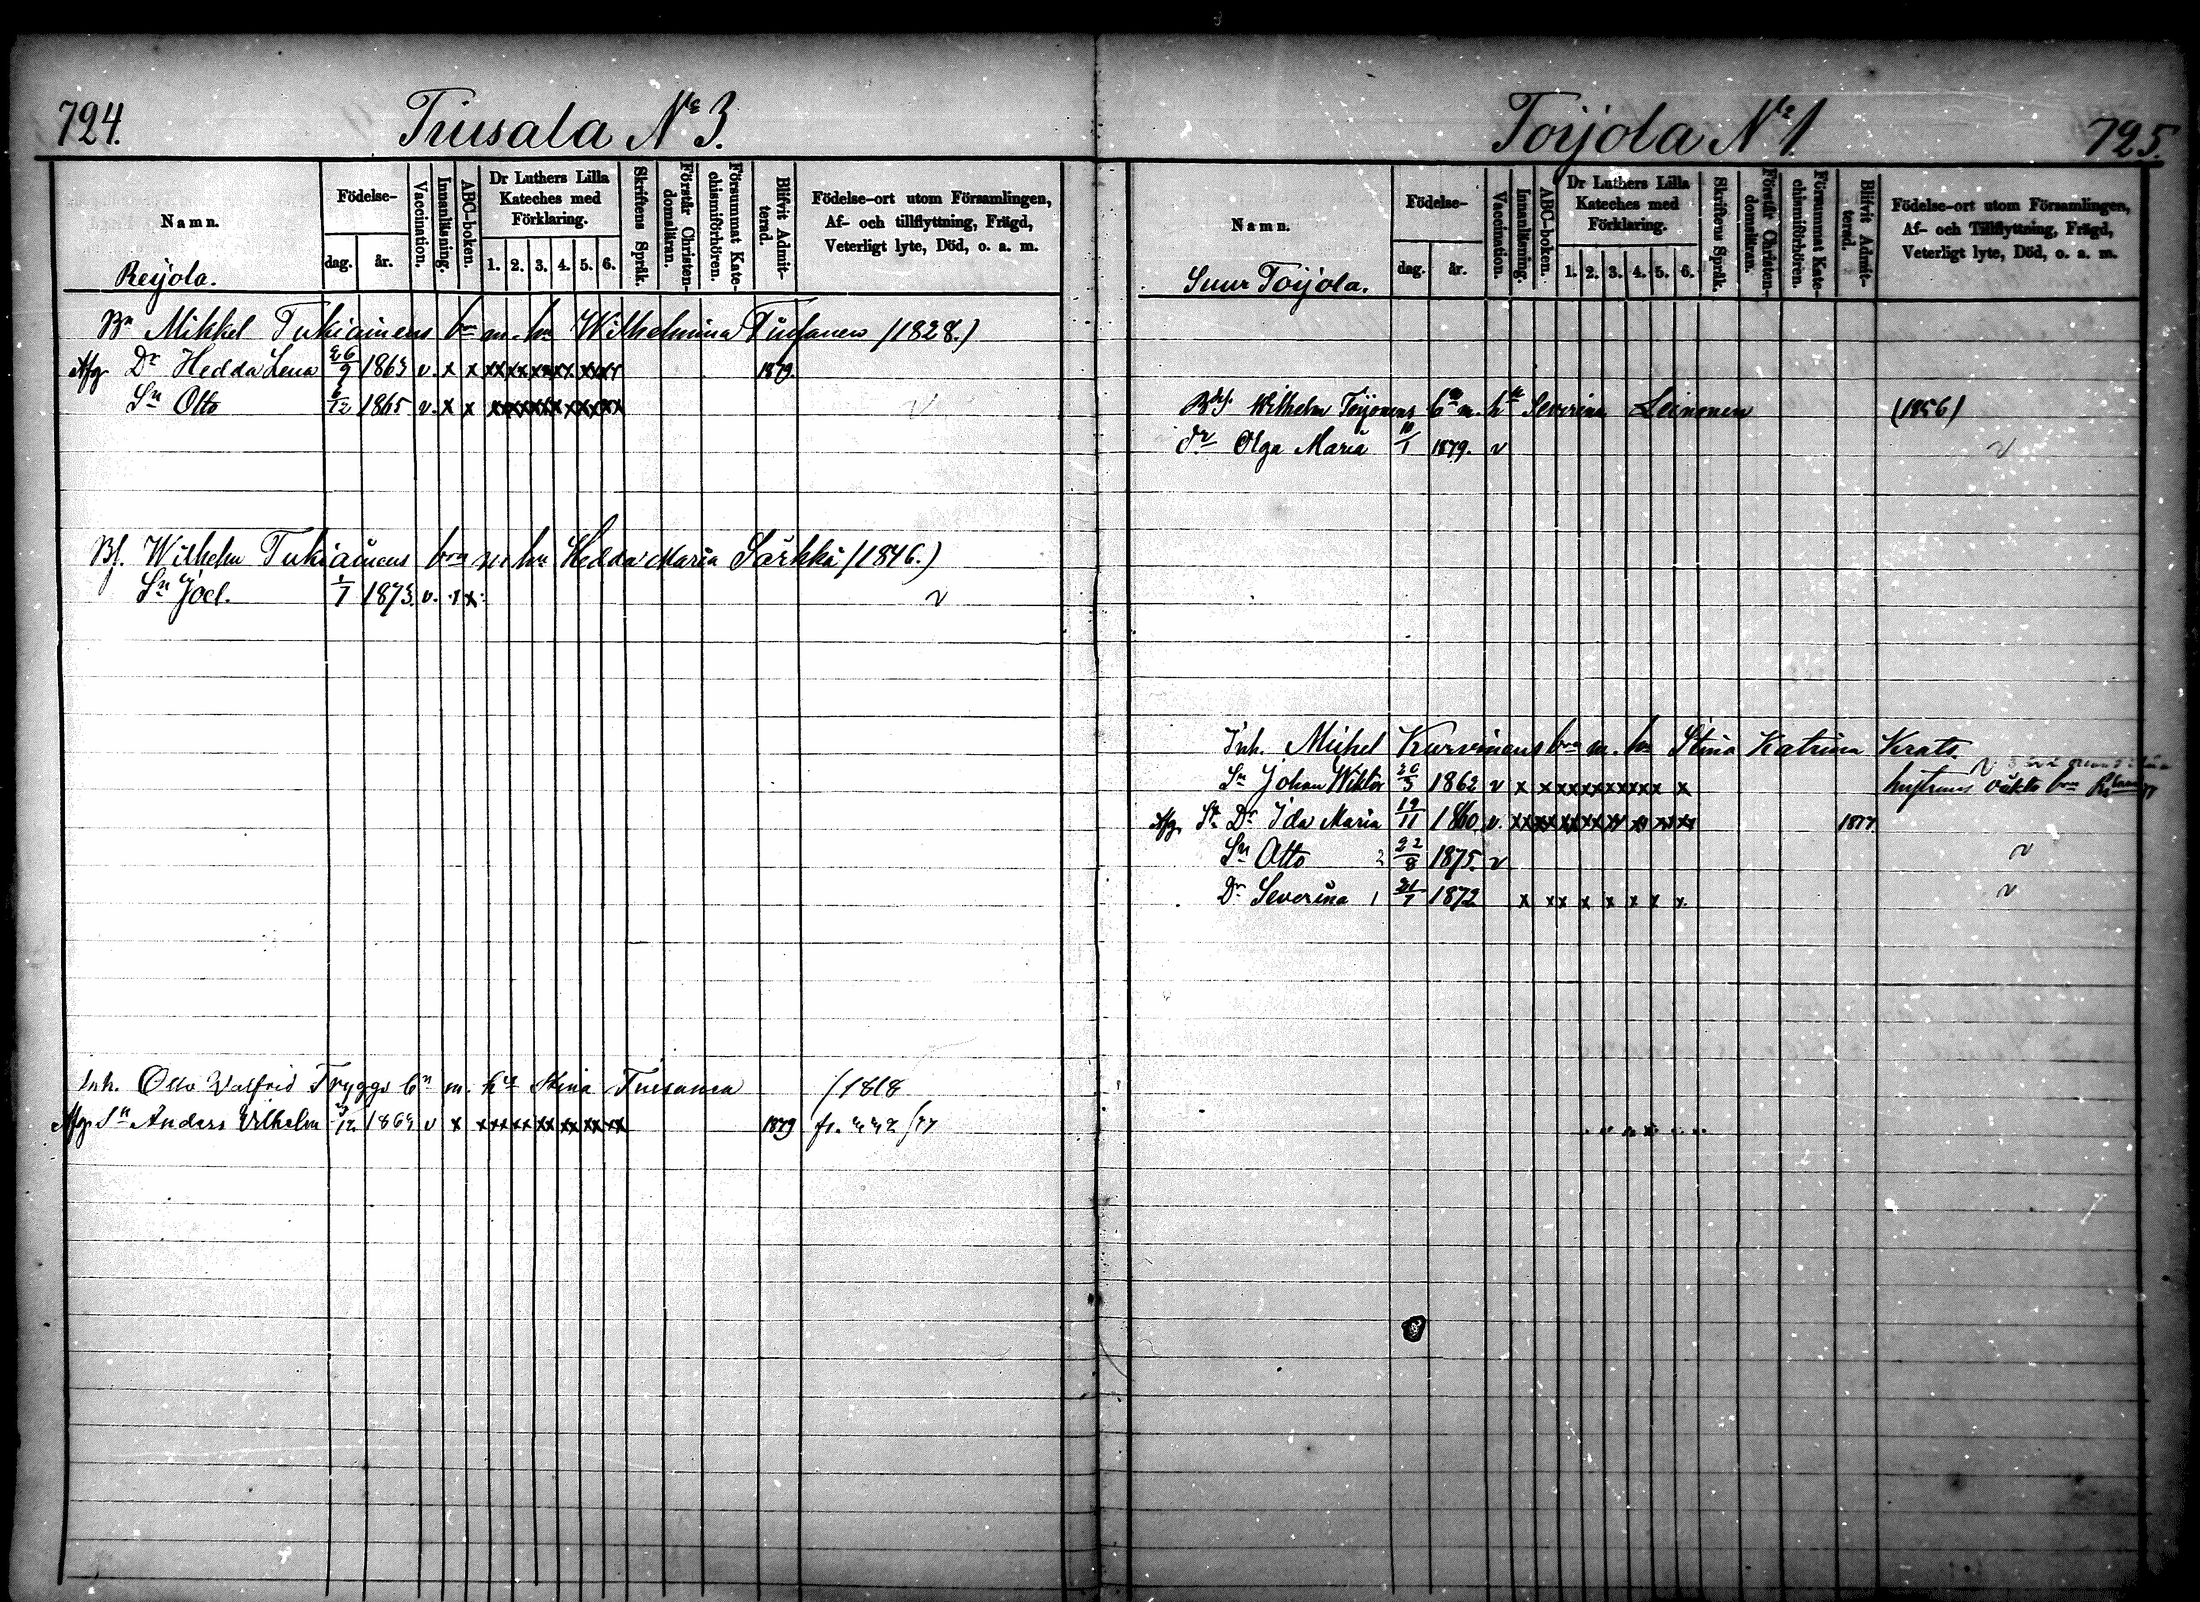 724.
Tiusala No 3.
Namn.
Födelse-
dag.
år.
Vaccination.
Innanläsning.
ABC-boken.
Dr Luthers Lilla Kateches med Förklaring.
1. 2. 3. 4. 5. 6.
Skriftens Språk.
Förstår Christendomsläran.
Försummat Katechismiförhören.
Blifvit Admitterad.
Födelse-ort utom Församlingen,
Af- och tillflyttning, Frägd,
Veterligt lyte, Död, o. a. m.
Reijola.
Bn Mikkel Tukiainens bn m. hn Wilhelmina (1828.)
Afg Dr Hedda Lena 26/9 1863 v. x x xx xx xx xx xx 1879.
Sn Otto 6/12 1865 v. x x xx xx xx xx xx xx v
Bf. Wilhelm Tukiainens bn m hn Hedda Maria Särkkä (1846.)
Sn Joel. 1/1 1873. v. x v
Inh. Otto Walfrid Tryggs bn m. hu Stina (1818
Afg. Sn Anders Wilhelm /12 v x xx xx xx xx xx xx 1879 fr.
Toijola No 1
725.
Namn.
Födelse-
dag.
år.
Vaccination.
Innanläsning.
ABC-boken.
Dr Luthers Lilla Kateches med Förklaring.
1. 2. 3. 4. 5. 6.
Skriftens Språk.
Förstår Christendomsläran.
Försummat Katechismiförhören.
Blifvit Admitterad.
Födelse-ort utom Församlingen,
Af- och Tillflyttning, Frägd,
Veterligt lyte, Död, o. a. m.
Suur Toijola.
Wilhelm Toijonens bn m. hu Severina Leinonen (1856)
dr Olga Maria 10/1 1879. v v
Inh. Michel Kurvinens bn m. hn Stina Katrina Krats.
Sn Johan Wiktor 20/5 1862 v x x xx xx xx xx x x hustruns oäkta bn
Afg. Dr Ida Maria 19/11 1860 v. xx xx xx xx xx xx xx 1877
Sn Otto 2 22/8 1875. v v
Dr Severina 1 21/1 1872 x xx x x x x x. v